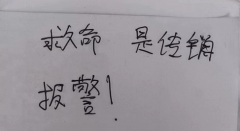 救命 是传销
报警！